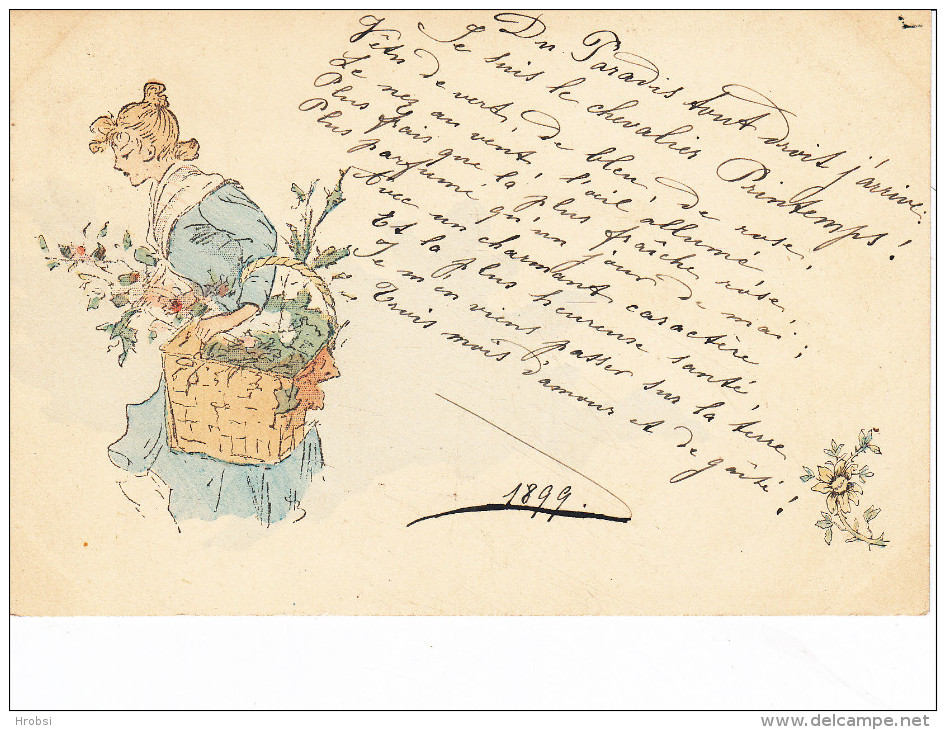 Du Paradis tout droit j'arrive :
Je suis le chevalier Printemps !
Vêtu de vert, de bleu, de rose,
Le nez au vent, l'œil allumé
Plus frais que la plus fraîche rose,
Plus parfumé qu'un jour de mai ;
Avec un charmant caractère
Et la plus heureuse santé,
Je m'en viens passer sur la terre
Trois mois d'amour et de gaîté !
1899.
HB
Hrobsi
www.delcampe.net